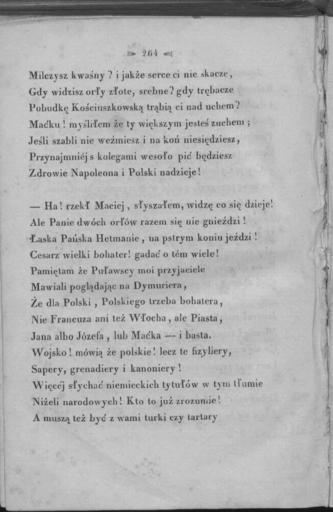 264
Milczysz kwaśny? i jakże serce ci nie skacze,
Gdy widzisz orły złote, srebne? gdy trębacze
Pobudkę Kościuszkowską trąbią ci nad uchem?
Maćku! myśliłem że ty większym jesteś zuchem;
Jeśli szabli nie weźmiesz i na koń niesiędziesz,
Przynajmniéj s kolegami wesoło pić będziesz
Zdrowie Napoleona i Polski nadzieje!
— Ha! rzekł Maciej, słyszałem, widzę co się dzieje!
Ale Panie dwóch orłów razem się nie gnieździ!
Łaska Pańska Hetmanie, na pstrym koniu jeździ!
Cesarz wielki bohater! gadać o tém wiele!
Pamiętam że Puławscy moi przyjaciele
Mawiali poglądając na Dymuriera,
Że dla Polski, Polskiego trzeba bohatera,
Nie Francuza ani też Włocha, ale Piasta,
Jana albo Józefa, lub Maćka — i basta.
Wojsko! mówią że polskie! lecz te fizyliery,
Sapery, grenadiery i kanoniery!
Więcéj słychać niemieckich tytułów w tym tłumie
Niżeli narodowych! Kto to już zrozumie!
A muszą też być z wami turki czy tartary